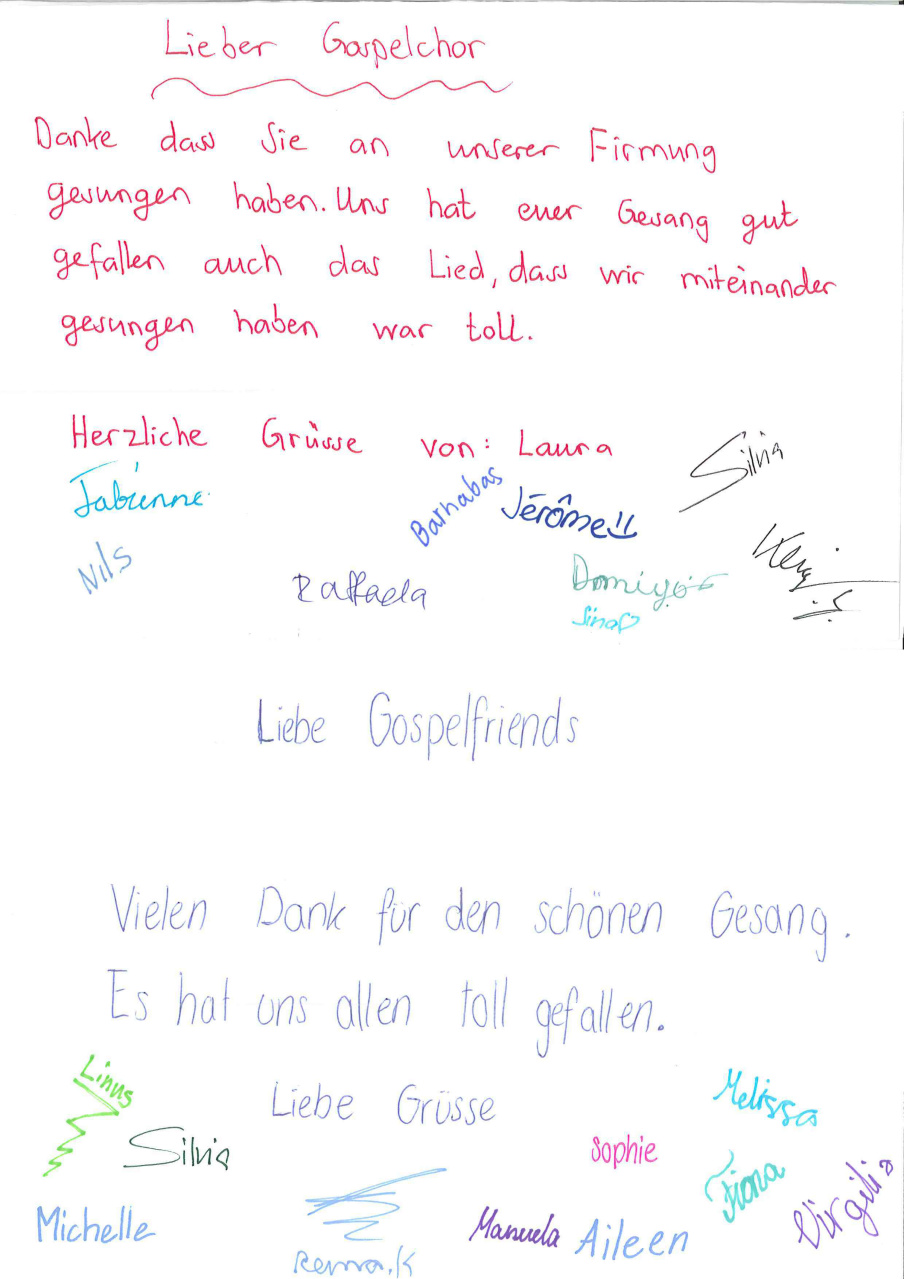 Lieber Gospelchor
Danke dass Sie an unserer Firmung
gesungen haben. Uns hat euer Gesang gut
gefallen auch das Lied, dass wir miteinander
gesungen haben war toll.
Herzliche Grüsse von: Laura
Silvia
Fabienne
Barnabas
Jérôme!!
Nils
Raffaela
Sina
Liebe Gospelfriends
Vielen Dank für den schönen Gesang.
Es hat uns allen toll gefallen.
Liebe Grüsse
Linus
Melissa
Silvia
Sophie
Fiona
Virgili
Michelle
Manuela
Aileen